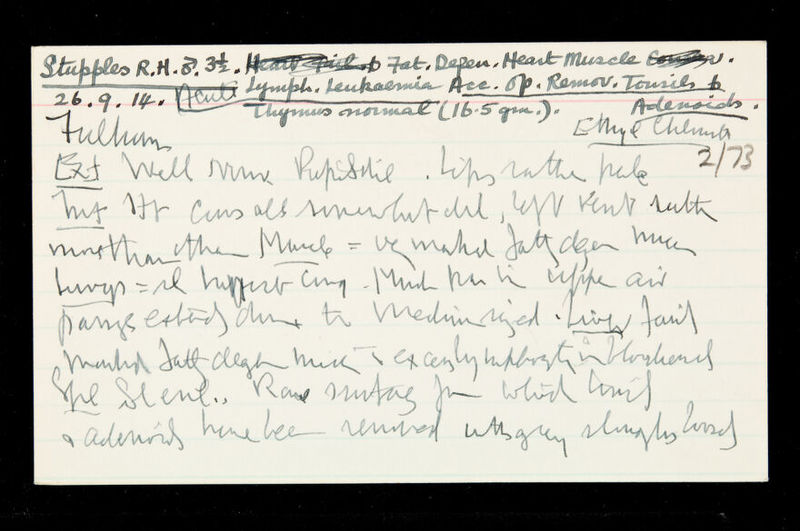 Stupples R.H. ♂. 3½. Heart Fail. Fat. Degen. Heart Muscle
26.9.14. Acute Lymph. Leukaemia Acc. Op. Remov. Tonsils &
Thymus normal (16.5 gm.). Adenoids.
Fulham Ethyl Chlorid
2/73
Ext Well Pup Dil. Lips rather pale
Int Ht somewhat dil, left Vent rather
more than other Muscle = v marked fatty degen
Lungs = sl cong. Much in upper air
passages extends down to medium sized. Liver faint
marked fatty degen excess lymphocytes in
Spl Sl enl.. Raw surfaces from which tonsils
& adenoids have been removed with grey sloughs